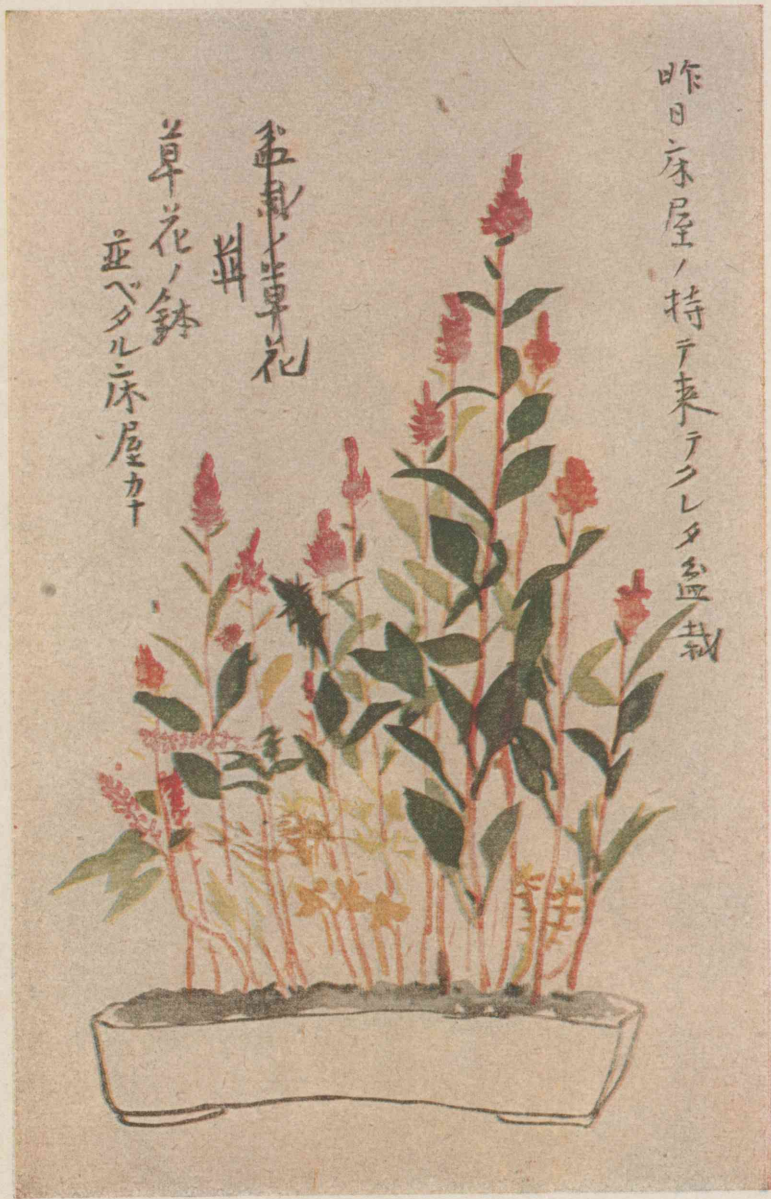 昨日床屋ノ持テ来テクレタ盆栽
盆栽ノ草花
並
草花ノ鉢
並ベタル床屋カナ